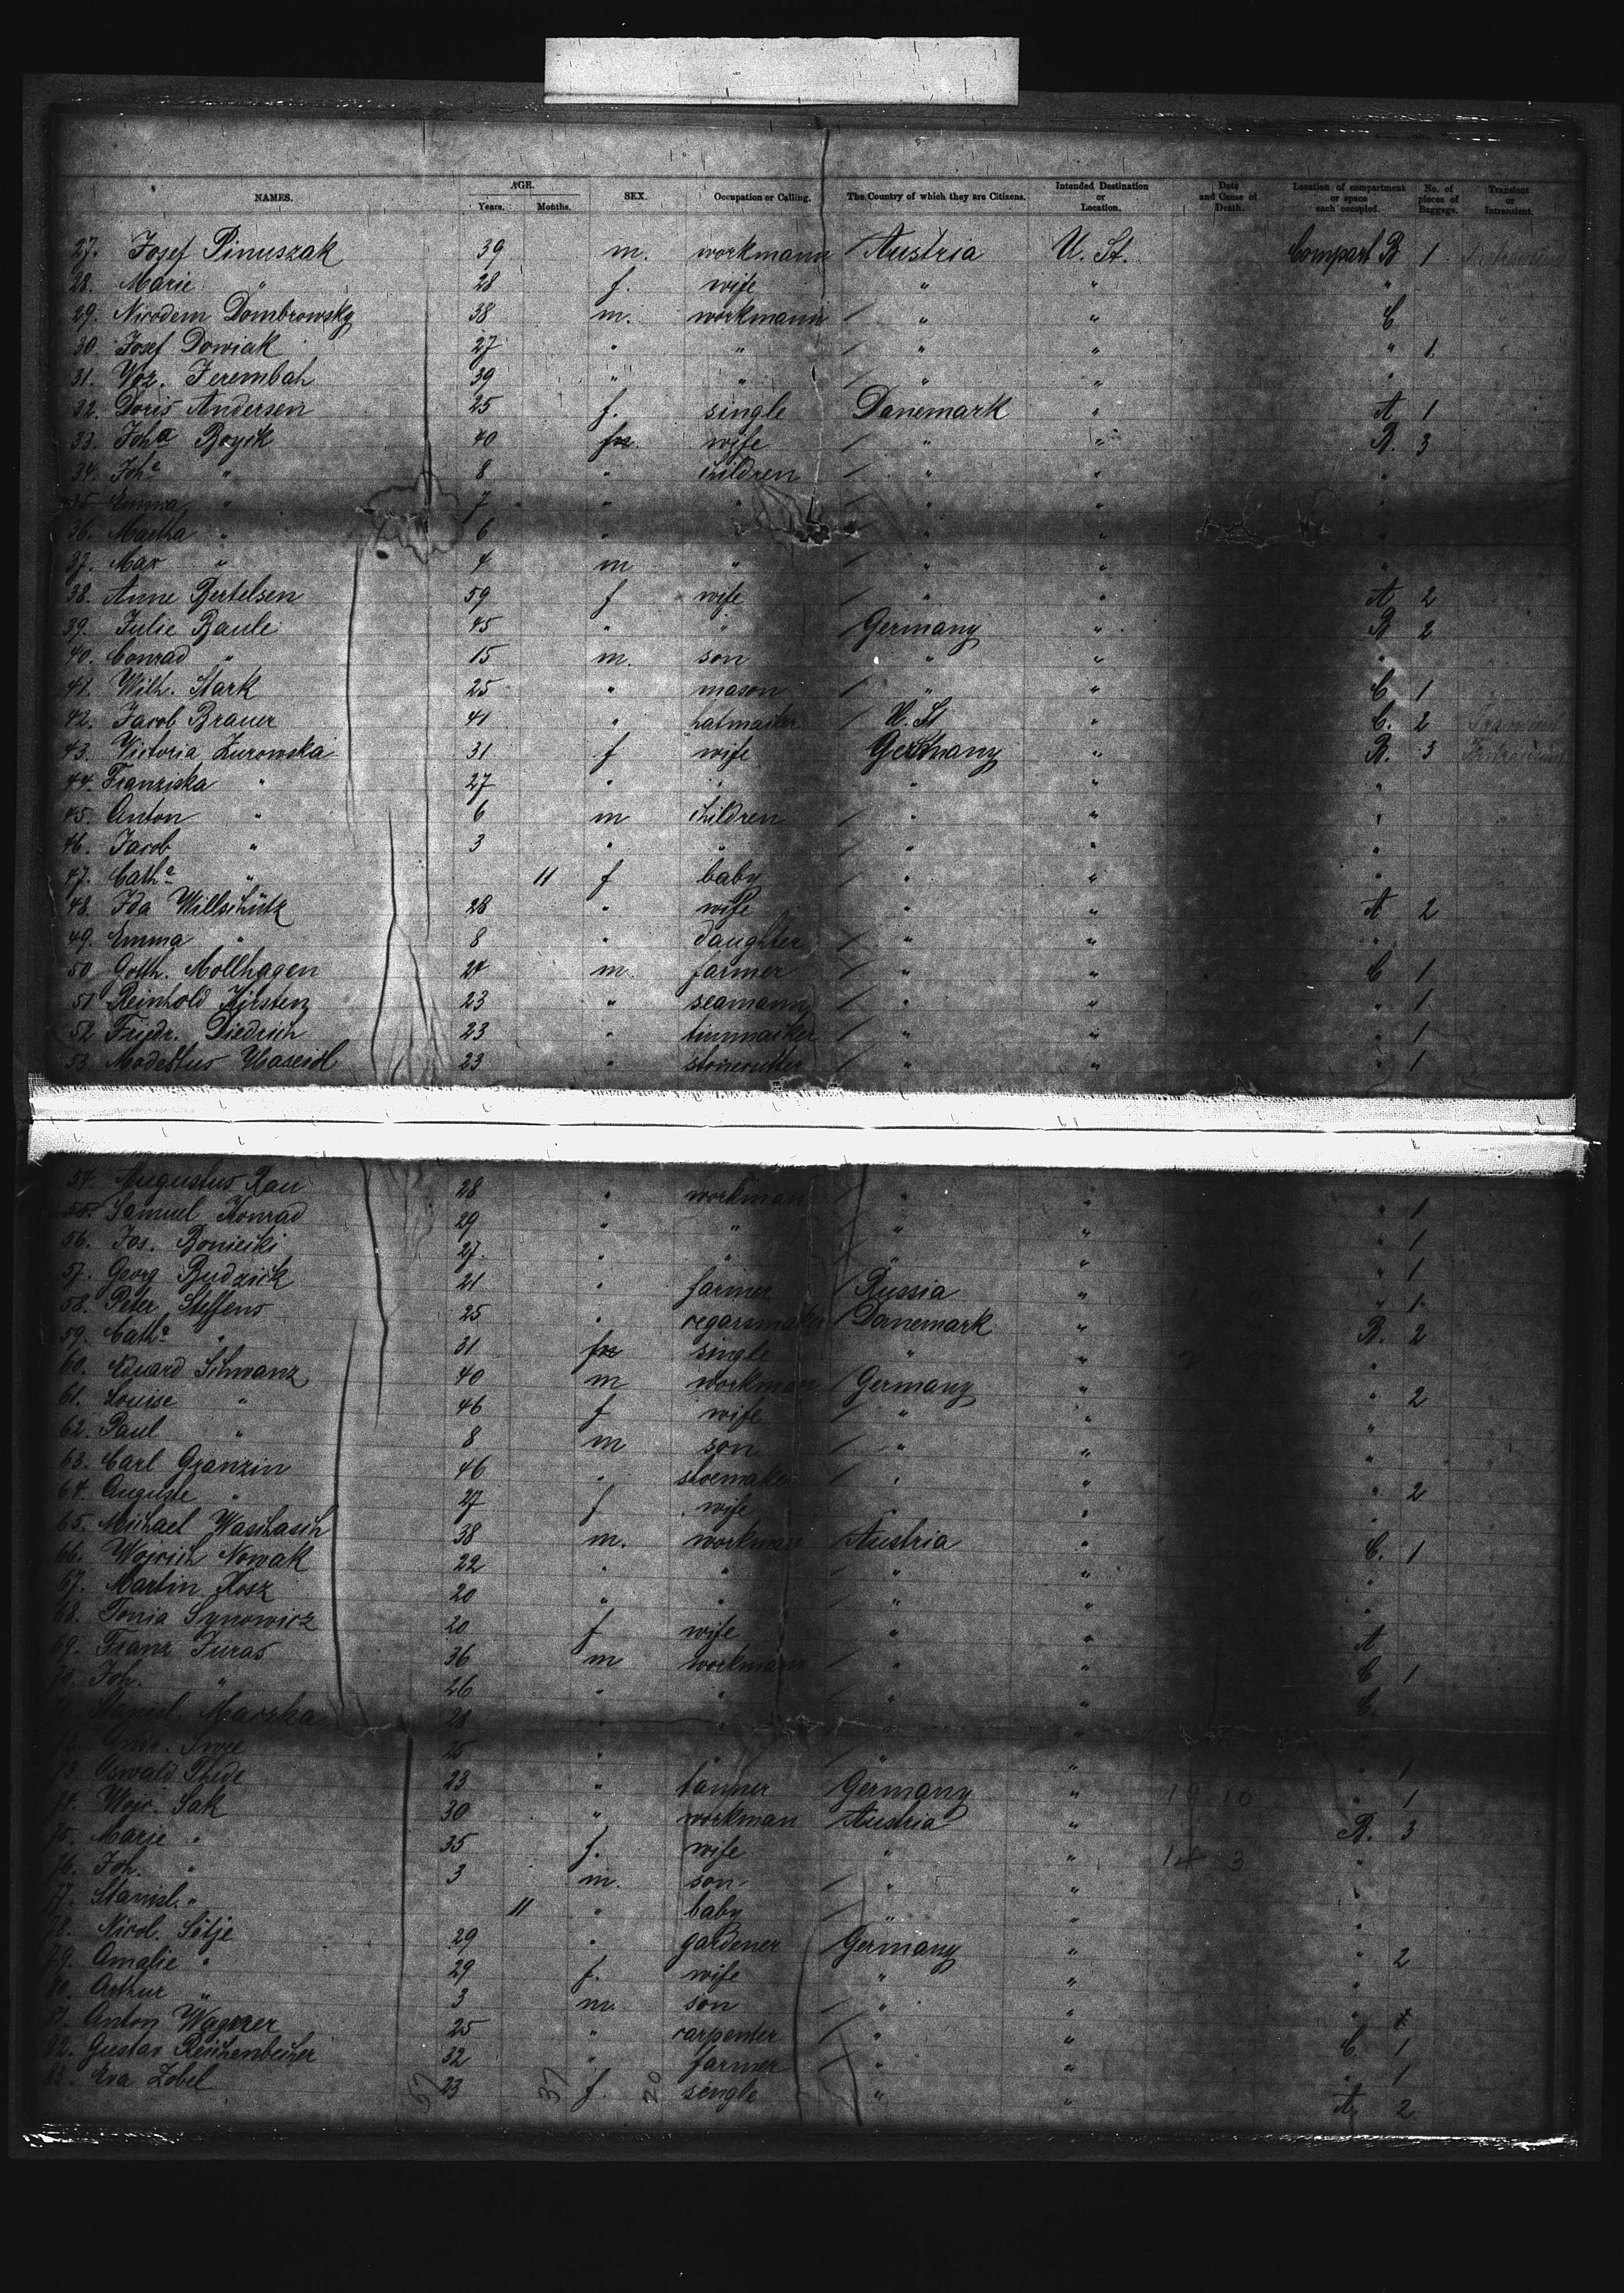 NAMES. AGE. Years. Months. SEX. Occupation or Calling. The Country of which they are Citizens. Intended Destination or Location. Date and Cause of Death. Location of compartment or space each occupied. No. of pieces of Baggage. Transient or Intransient.
27. Josef Pinuszak 39 m. workmann Austria U. St. Compart B 1
28. Marie " 28 f. wife " " "
29. Nicodem Dombrowsky 38 m. workmann / " " C
30. Josef Dowiak 27 " " / " " " 1
31. Woz. Jerembah 39 " " / " " "
32. Doris Andersen 25 f. single Danemark " A 1
33. Joha Boyik 40 f wife / " " B. 3
34. Joha " 8 " children / " " "
35. Emma " 7 " " / " " "
36. Martha " 6 " " / " " "
37. Max " 4 m " / " " "
38. Anne Bertelsen 59 f wife / " " A 2
39. Julie Baule 45 " " / Germany " B 2
40. Conrad " 15 m. son " " "
41. Wilh. Stark 25 " mason / " " C 1
42. Jacob Brauer 41 " hatmaker / U. St " C. 2 Transient
43. Victoria Zurowska 31 f wife Germany " B. 3
44. Franziska " 27 " " " " "
45. Anton " 6 m children / " " "
46. Jacob " 3 " " / " " "
47. Catha " 11 f baby / " " "
48. Ida Willschütz 28 " wife " " A 2
49. Emma " 8 " daughter / " " "
50 Gotth. Mollhagen 24 m. farmer / " " C 1
51 Reinhold Kirsten 23 " seamann / " " " 1
52 Friedr. Diedrich 23 " tinmaiker / " " " 1
53. Modestus 23 " stonecutter / " " " 1
54. Augustus Rau 28 " workman / " " " 1
55. Samuel Konrad 29 " " / " " " 1
56. Jos. Boniecki 27. " " / " " " 1
57. Georg Budzick 21 " farmer / Russia " " 1
58. Peter Steffens 25 " cegarsmaker / Danemark " B. 2
59. Catha " 31 f single " " "
60. Eduard Schwanz 40 m workman / Germany " " 2
61. Louise " 46 f wife / " " "
62. Paul " 8 m son / " " "
63. Carl Granzin 46 " shoemaker / " " " 2
64. Auguste " 27 f wife " " "
65. Michael Waschasch 38 m. workman Austria " C. 1
66. Wojcich Nowak 22 " " / " " "
67. Martin Kosz 20 " " / " " "
68. Tonia Synowicz 20 f wife " " A
69. Franz Juras 36 m workmann / " " C 1
70. Joh. " 26 " " / " " C.
71. Stanisl. Marzka 28 " " " "
72. 25 " " / " " " 1
73. Oswald Thede 23 " tanner Germany " 19 10 " 1
74. Wojc. Sak 30 " workman Austria " B. 3
75. Marie " 35 f. wife " " 14 3 "
76. Joh. " 3 m. son / " " "
77. Stanisl. " 11 " baby / " " "
78. Nicol. Götje 29 " gardener Germany " " 2
79. Amalie " 29 f. wife " " "
80. Arthur " 3 m. son / " " "
81. Anton Wagner 25 " carpenter / " " C. 1
82. Gustav Reichenbecher 32 " farmer / " " " 1
83. Eva Zobel 23 f. single " " A. 2
57 37 20